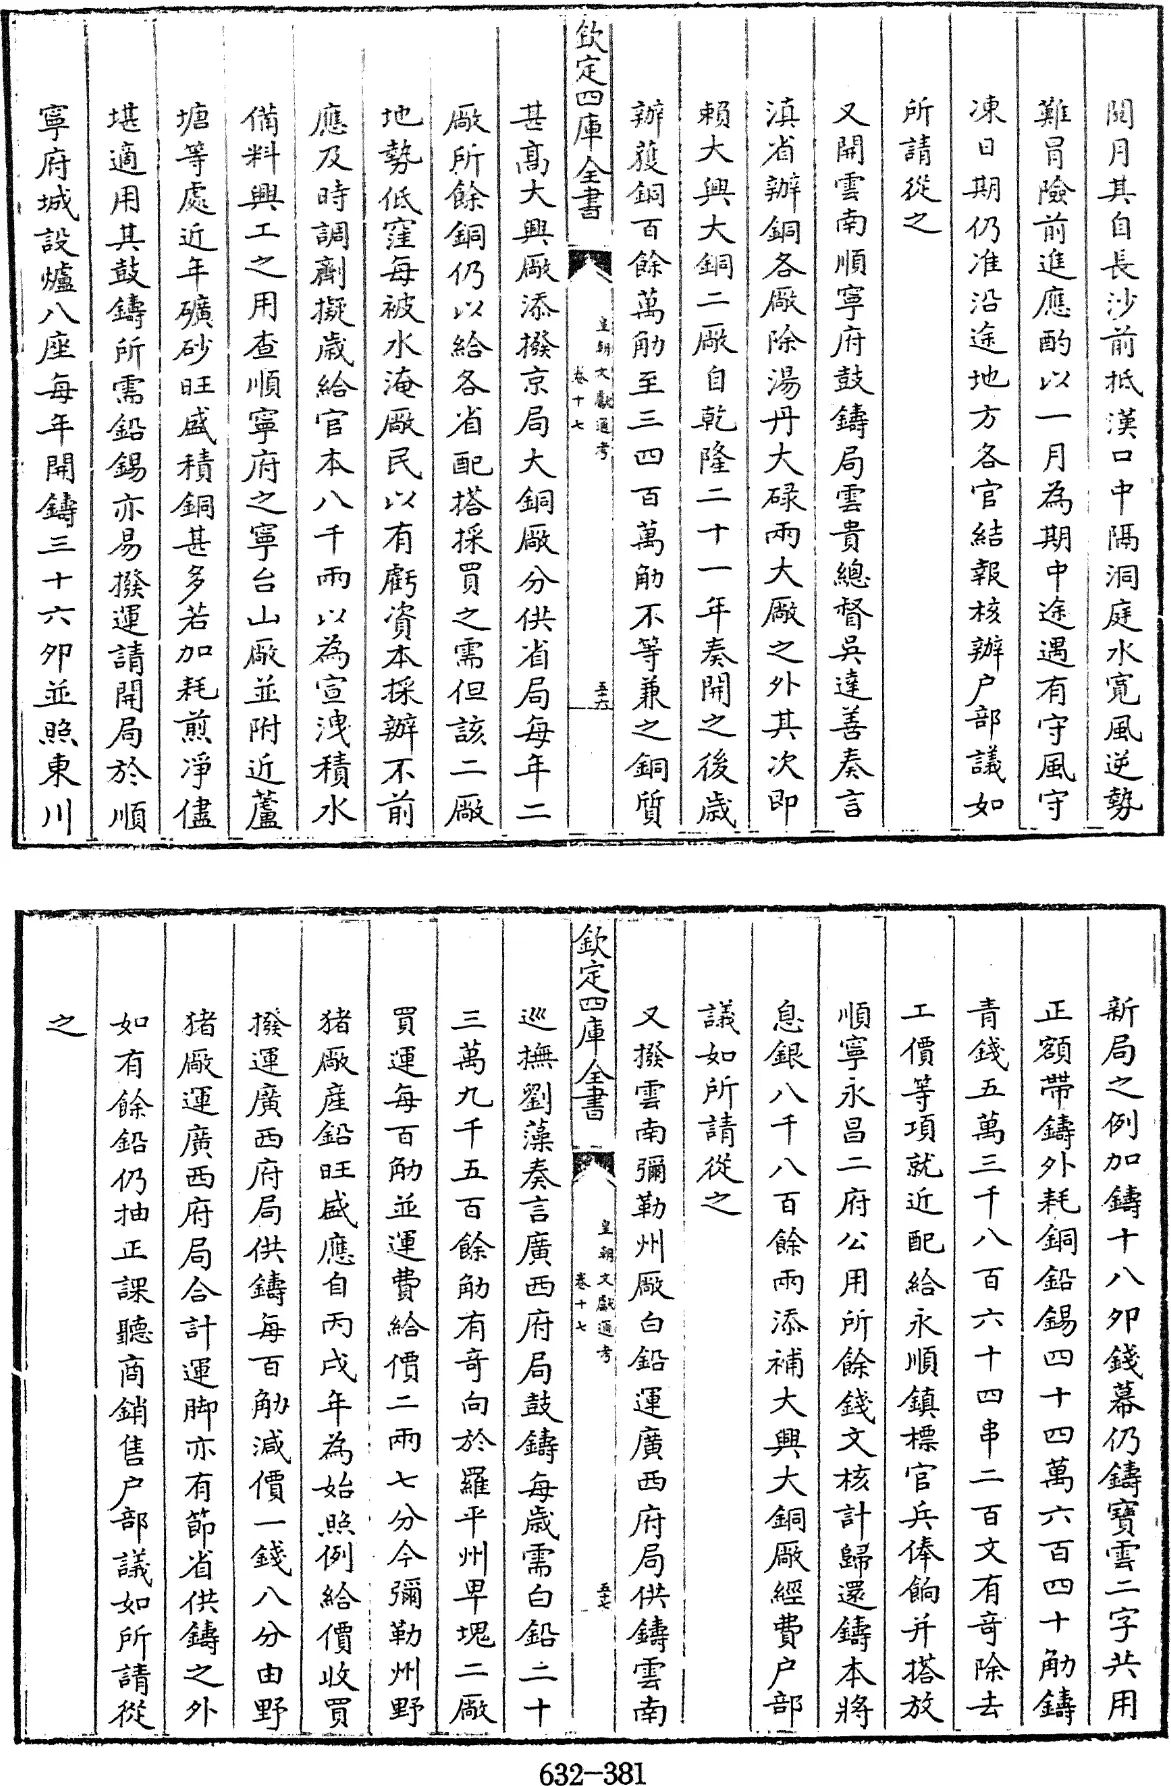 閱月其自長沙前抵漢口中隔洞庭水寛風逆勢
難冒險前進應酌以一月為期中途遇有守風守
凍日期仍准沿途地方各官結報核辦户部議如
所請從之
又開雲南順寧府鼓鑄局雲貴總督吳達善奏言
滇省辦銅各廠除湯丹大碌兩大廠之外其次即
賴大興大銅二廠自乾隆二十一年奏開之後歲
辦獲銅百餘萬觔至三四百萬觔不等兼之銅質
欽定四庫全書
皇朝文獻通考
卷十七
五六
甚高大興廠添撥京局大銅廠分供省局每年二
廠所餘銅仍以給各省配搭採買之需但該二廠
地勢低窪每被水淹廠民以有虧資本採辦不前
應及時調劑擬歲給官本八千兩以為宣洩積水
備料興工之用查順寧府之寧台山廠並附近蘆
塘等處近年礦砂旺盛積銅甚多若加耗煎淨儘
堪適用其鼓鑄所需鉛錫亦易撥運請開局於順
寧府城設爐八座每年開鑄三十六夘並照東川
新局之例加鑄十八夘錢幕仍鑄寶雲二字共用
正額帶鑄外耗銅鉛錫四十四萬六百四十觔鑄
青錢五萬三千八百六十四串二百文有奇除去
工價等項就近配給永順鎮標官兵俸餉并搭放
順寧永昌二府公用所餘錢文核計歸還鑄本將
息銀八千八百餘兩添補大興大銅廠經費户部
議如所請從之
又撥雲南彌勒州廠白鉛運廣西府局供鑄雲南
欽定四庫全書
皇朝文獻通考
卷十七
五七
巡撫劉藻奏言廣西府局鼓鑄每歲需白鉛二十
三萬九千五百餘觔有奇向於羅平州卑塊二廠
買運每百觔並運費給價二兩七分今彌勒州野
猪廠産鉛旺盛應自丙戌年為始照例給價收買
撥運廣西府局供鑄每百觔減價一錢八分由野
猪廠運廣西府局合計運脚亦有節省供鑄之外
如有餘鉛仍抽正課聽商銷售户部議如所請從
之
632-381